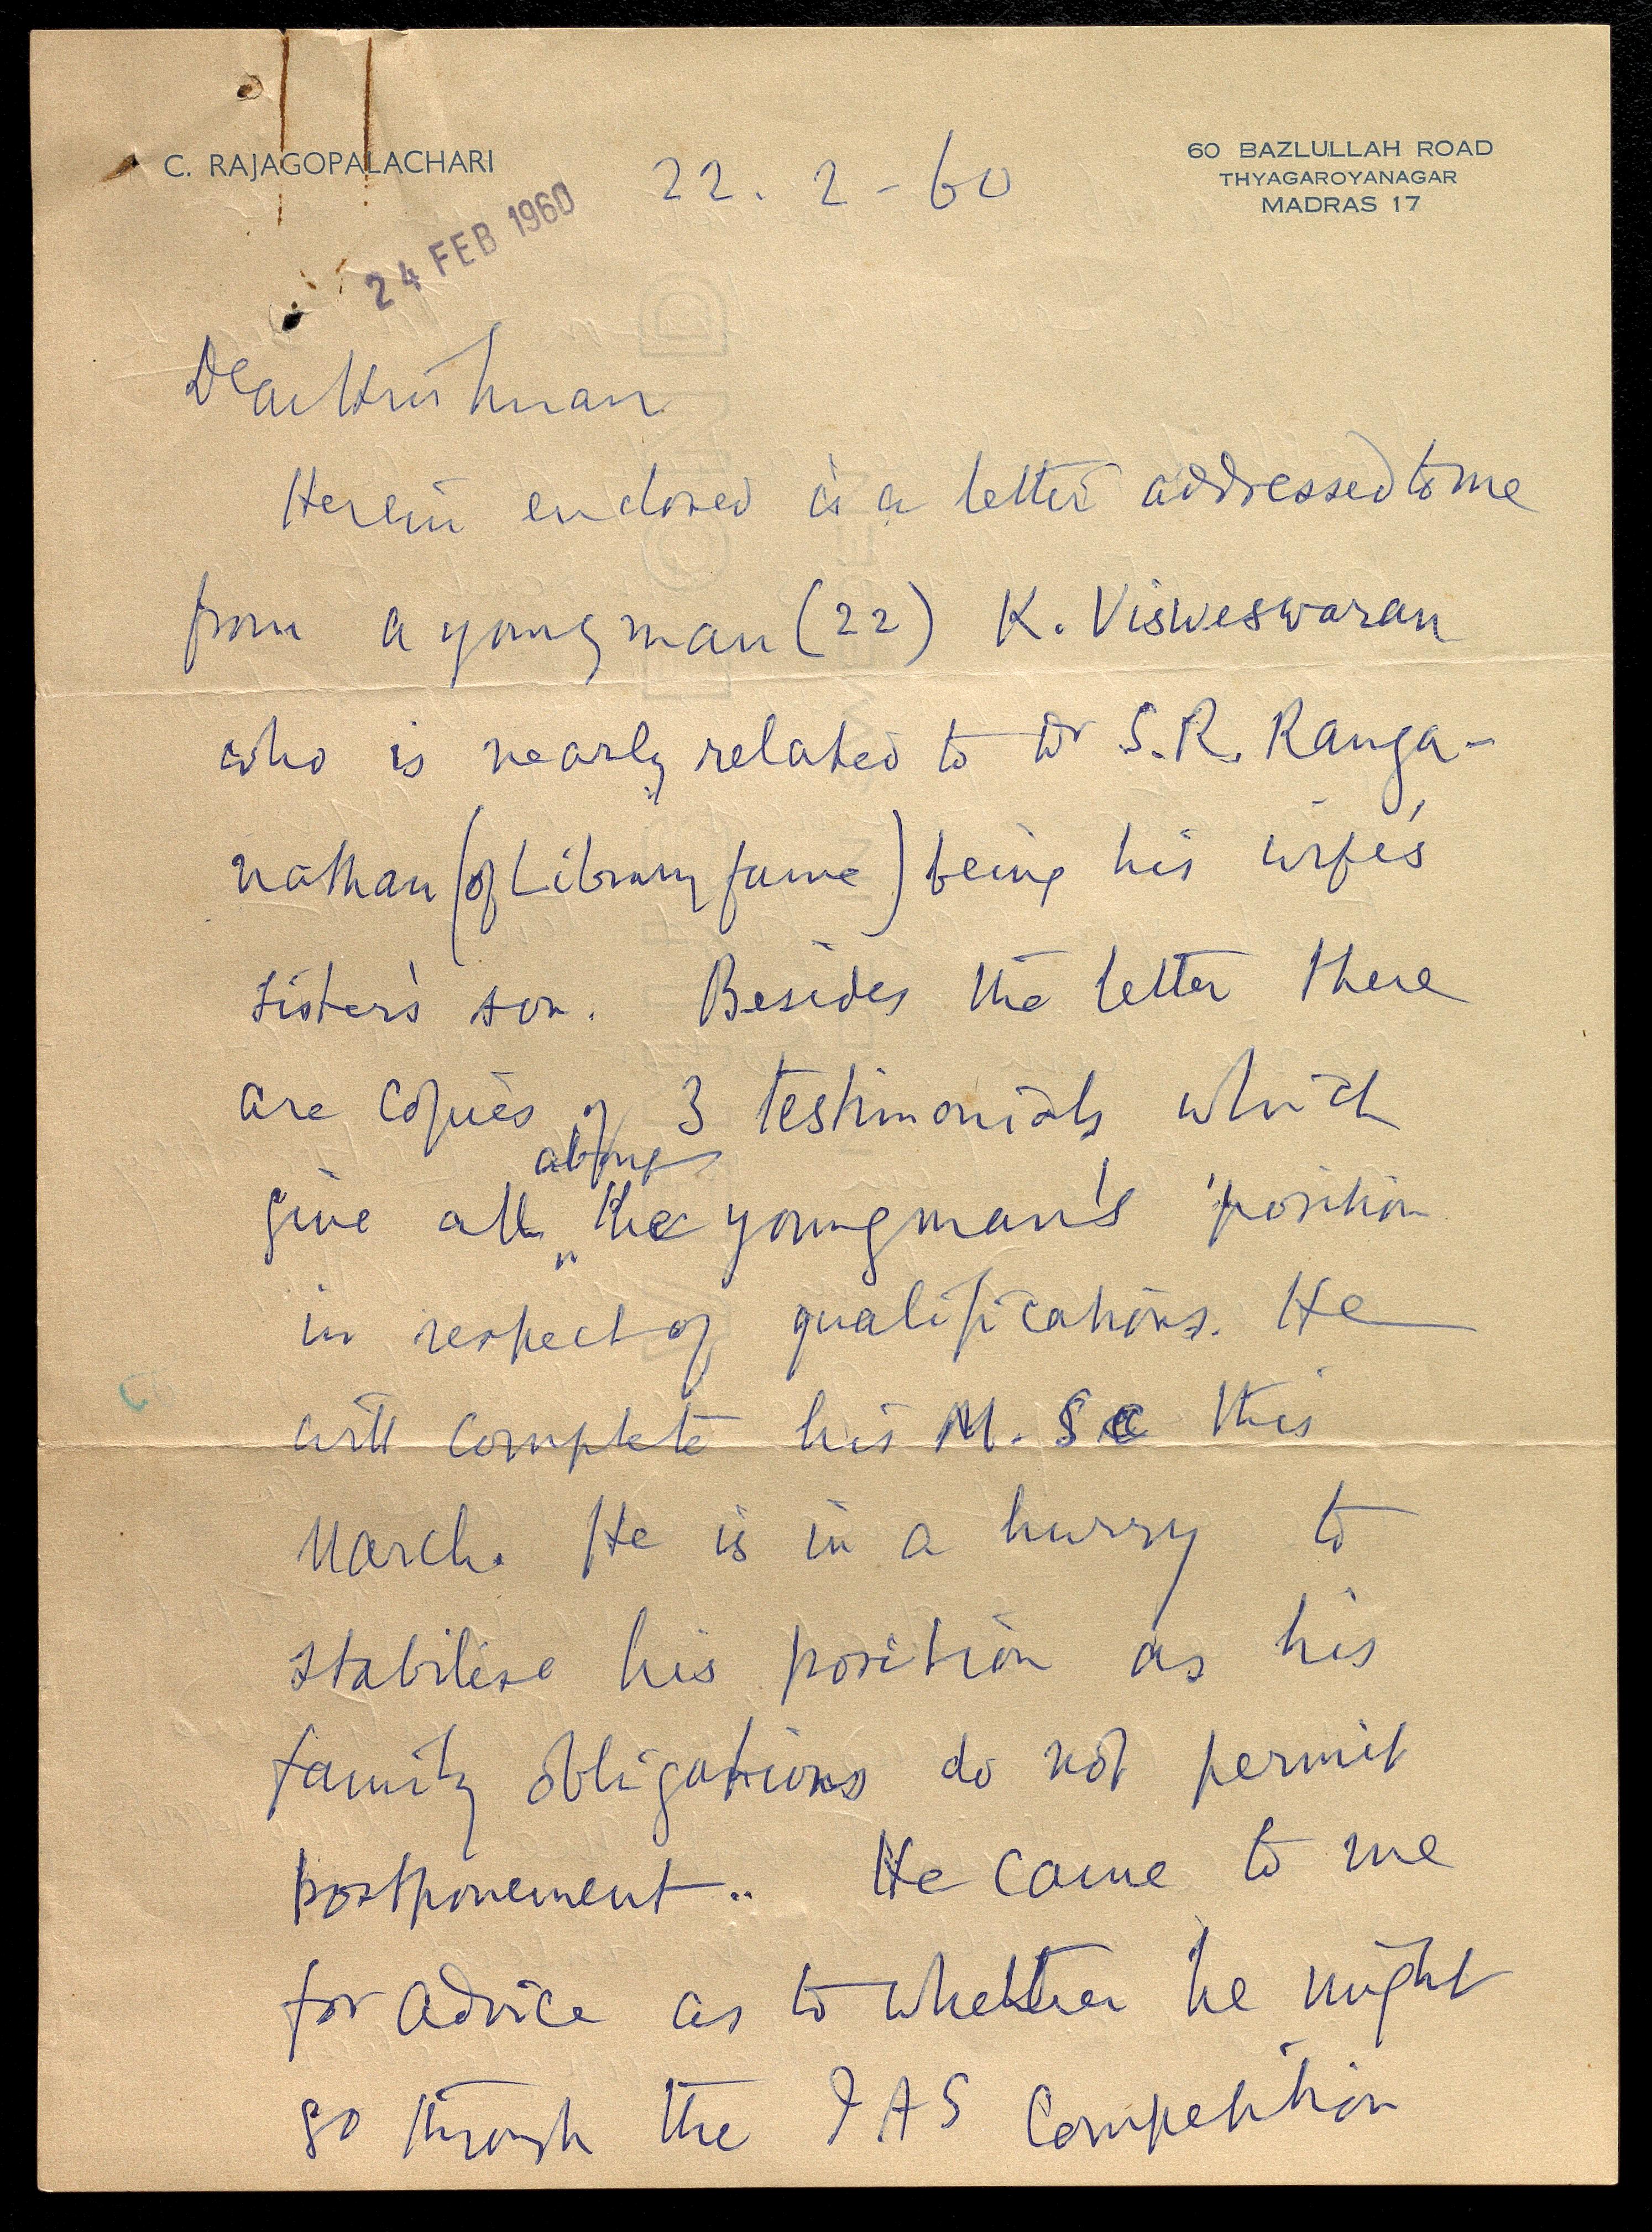 C. RAJAGOPALACHARI
22. 2 - 60
60 BAZLULLAH ROAD
THYAGAROYANAGAR
MADRAS 17
24 FEB 1960
Dear Krishnan
Herein enclosed is a letter addressed to me
from a young man (22) K. Visweswaran
who is nearly related to Dr S.R. Ranga-
nathan (of Library fame) being his wife's
sister's son. Besides the letter there
are copies of 3 testimonials which
about
give all the youngman's position
in respect of qualifications. He
will complete his M. Sc this
March. He is in a hurry to
stabilise his position as his
family obligations do not permit
postponement.. He came to me
for advice as to whether he might
go through the IAS Competition